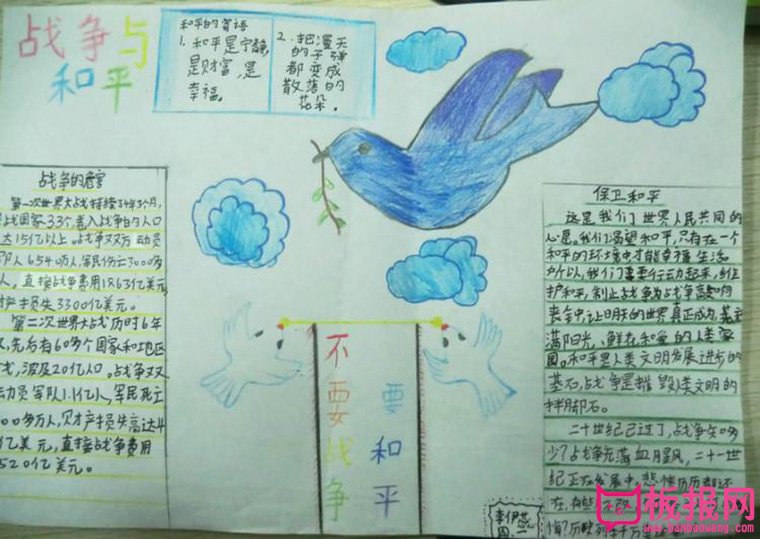 战争与
和平
和平的寄语
1. 和平是宁静,
是财富,是
幸福。
2. 把漫天
的子弹
都变成
散落的
花朵。
战争的危害
第一次世界大战持续了4年3个月,
战国家33个,卷入战争的人口
达15亿以上。战争双方动员
军民伤亡3000多
人,直接战争费用1863亿美元,
财产损失3300亿美元。
第二次世界大战历时6年
先后有60多个国家和地区
战,波及20亿人口。战争双
动员军队1.1亿人,军民死亡
000多万人,财产损失高达4
亿美元,直接战争费用
520亿美元。
不要战争
要和平
保卫和平
这是我们世界人民共同的
心愿。我们渴望和平,只有在一个
和平的环境中才能幸福生活
所以,我们需要行动起来,维
护和平,制止战争
让明天的世界真正成为
满阳光、鲜花和爱的人类家
园。和平是人类文明发展进步的
基石,战争是摧毁人类文明的
绊脚石。
二十世纪已过了,战争知多
少?战争充满血腥风,二十一世
纪正在发展中,悲惨历历都还
在,
李伊蕊
板报网
www.banbaowang.com